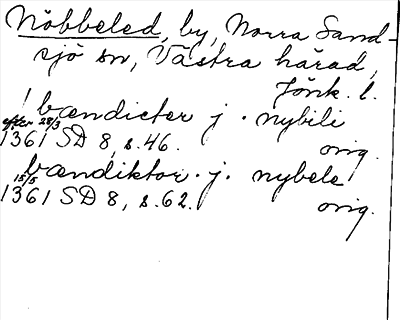 Nöbbeled, by, Norra Sand-
sjö sn, Västra härad,
Jönk. l.
bændicter j. nybili
efter 28/3
1361 SD 8, s. 46. orig.
bændiktor. j. nybele
15/5
1361 SD 8, s. 62. orig.